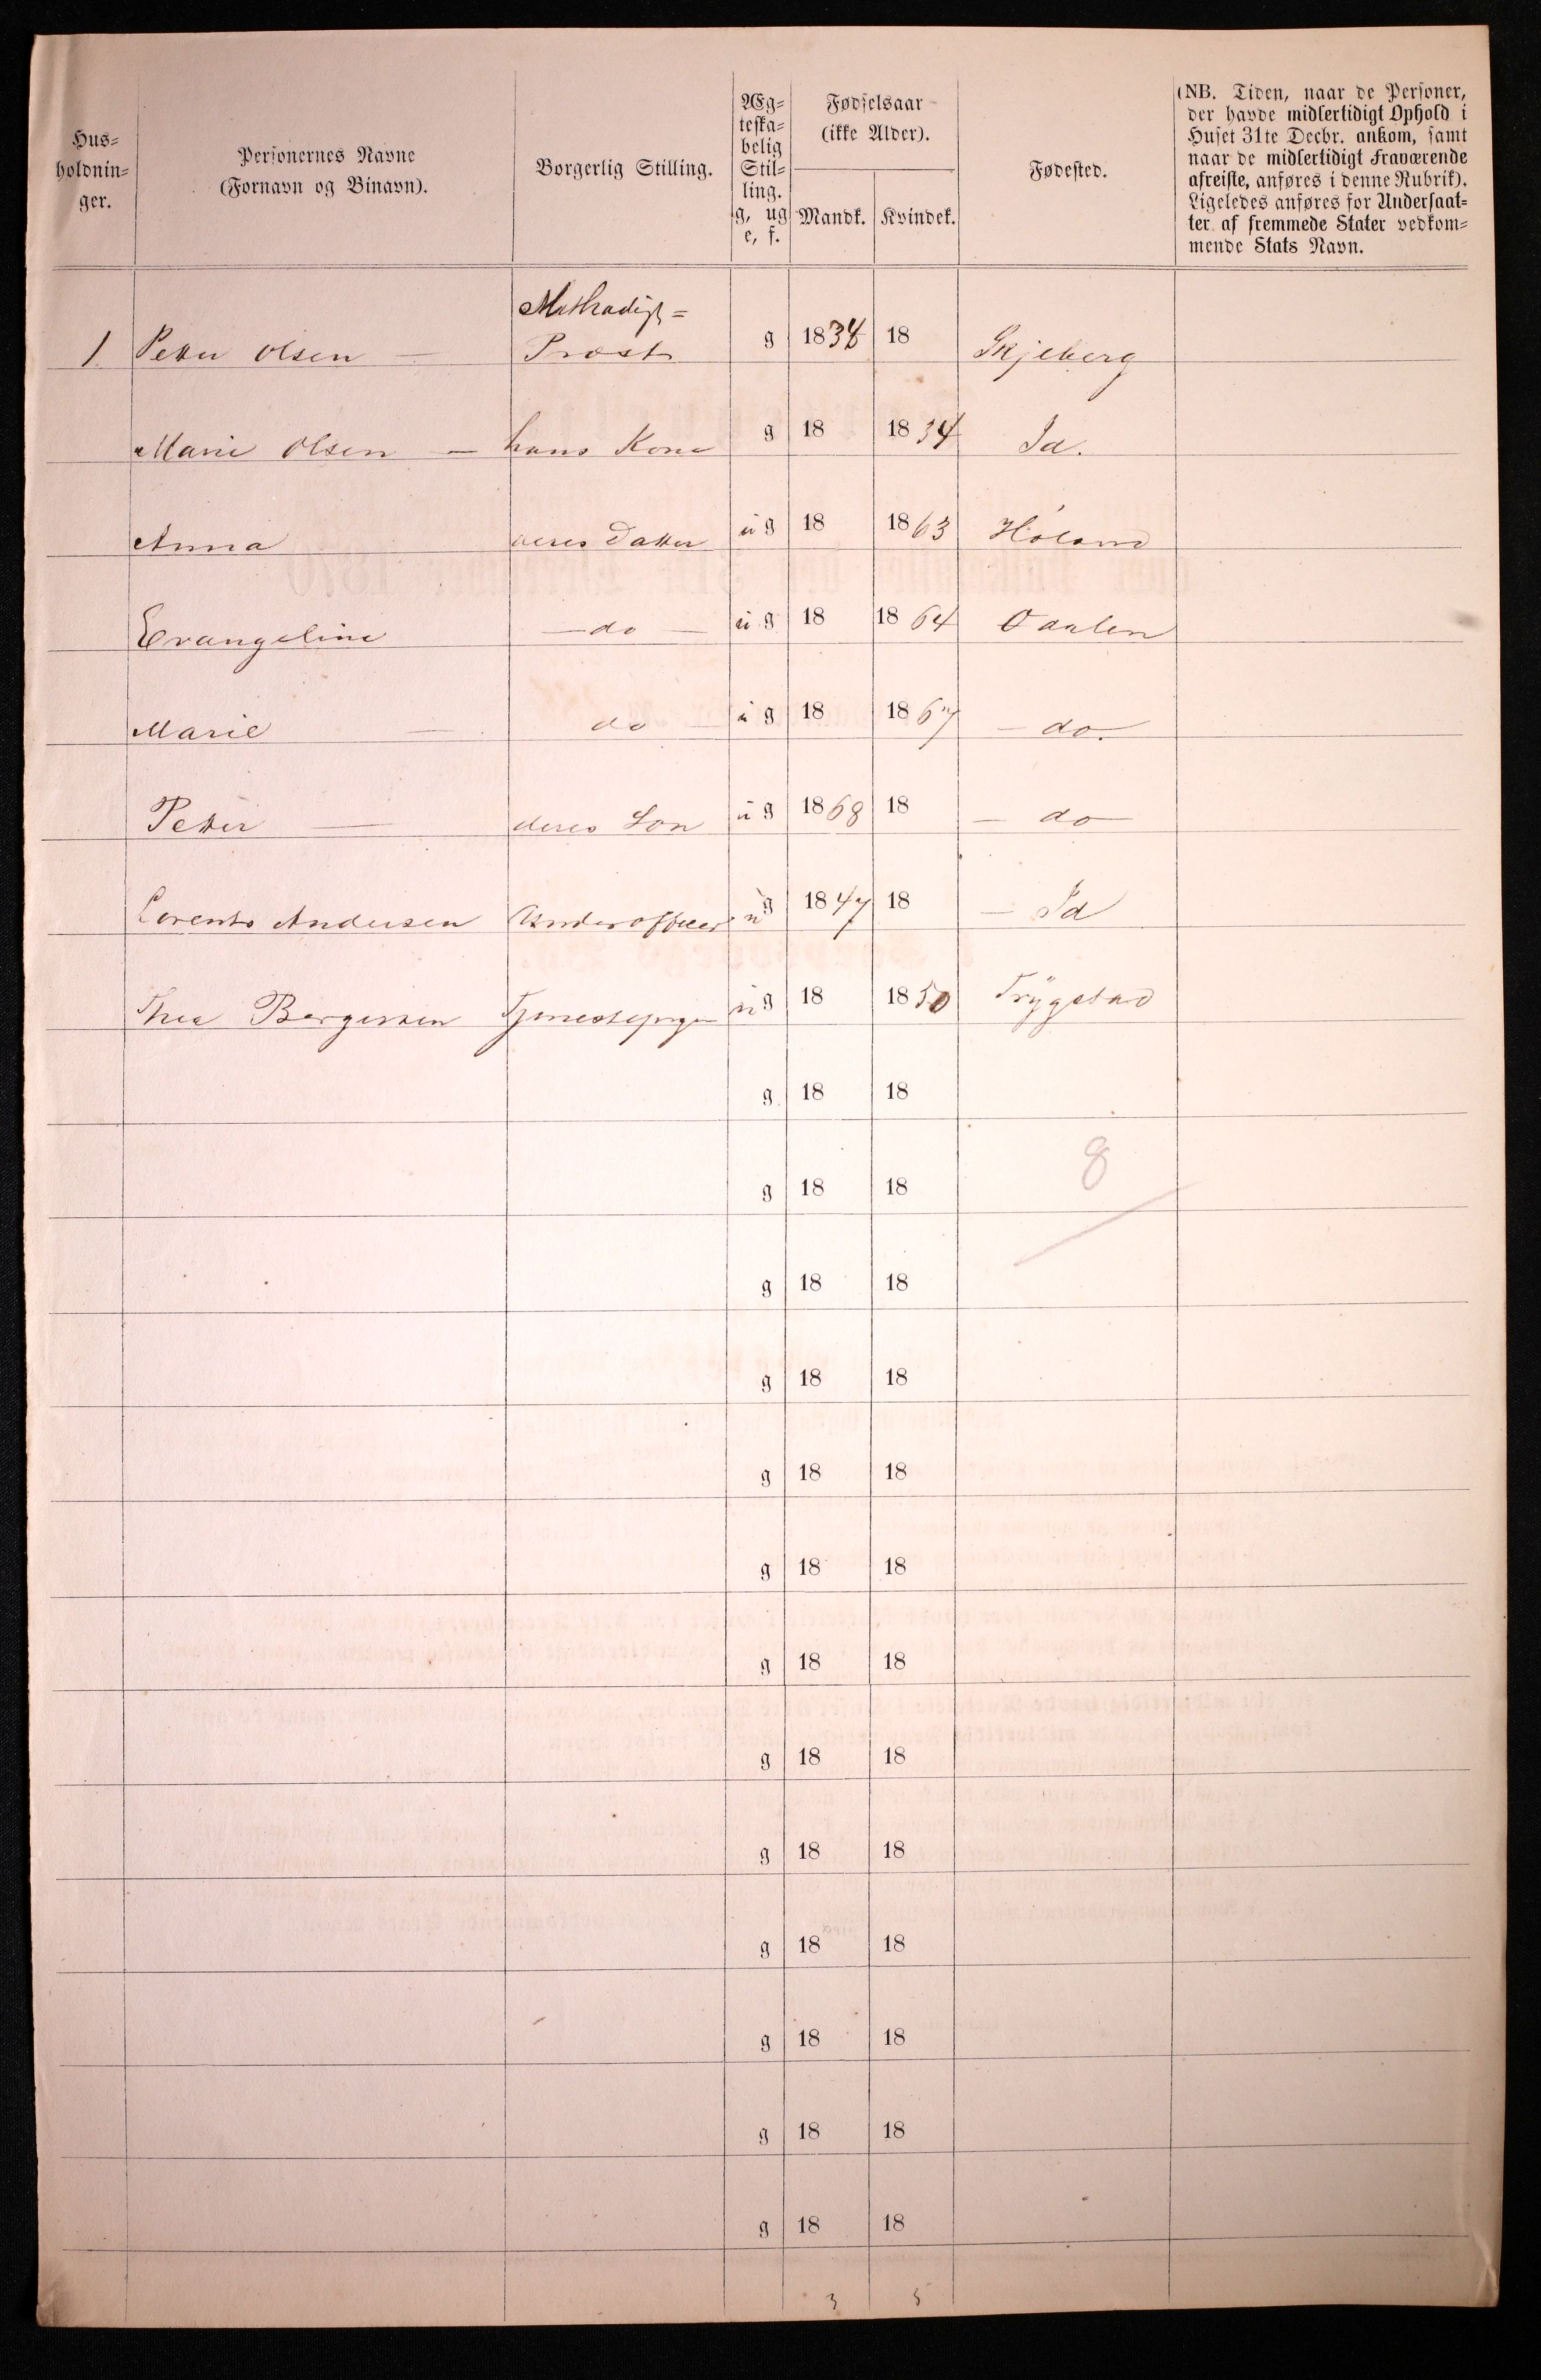 Hus=
holdnin=
ger.
Personernes Navne
(Fornavn og Binavn).
Borgerlig Stilling.
Æg=
teska=
belig
Stil=
ling.
g, ug
e, f.
Fødselsaar
(ikke Alder).
Mandk. Kvindek.
Fødested.
(NB. Tiden, naar de Personer,
der havde midlertidigt Ophold i
Huset 31te Decbr. ankom, samt
naar de midlertidigt Fraværende
afreiste, anføres i denne Rubrik).
Ligeledes anføres for Undersaat=
ter af fremmede Stater vedkom=
mende Stats Navn.
Methodist=
1 Petter Olsen — Præst g 1834 18 Skjeberg
Marie Olsen — hans Kone g 18 1834 Id.
Anna deres Datter u g 18 1863 Høland
Evangeline — do — u g 18 1864 Odalen
Marie — do — u g 18 1867 — do.
Petter — deres Søn u g 1868 18 — do —
Lorents Andersen Underofficer u g 1847 18 — Id
Thea Bergersen Tjenestepige u g 18 1850 Trygstad
g 18 18
g 18 18 8
g 18 18
g 18 18
g 18 18
g 18 18
g 18 18
g 18 18
g 18 18
g 18 18
g 18 18
g 18 18
g 18 18
3 5